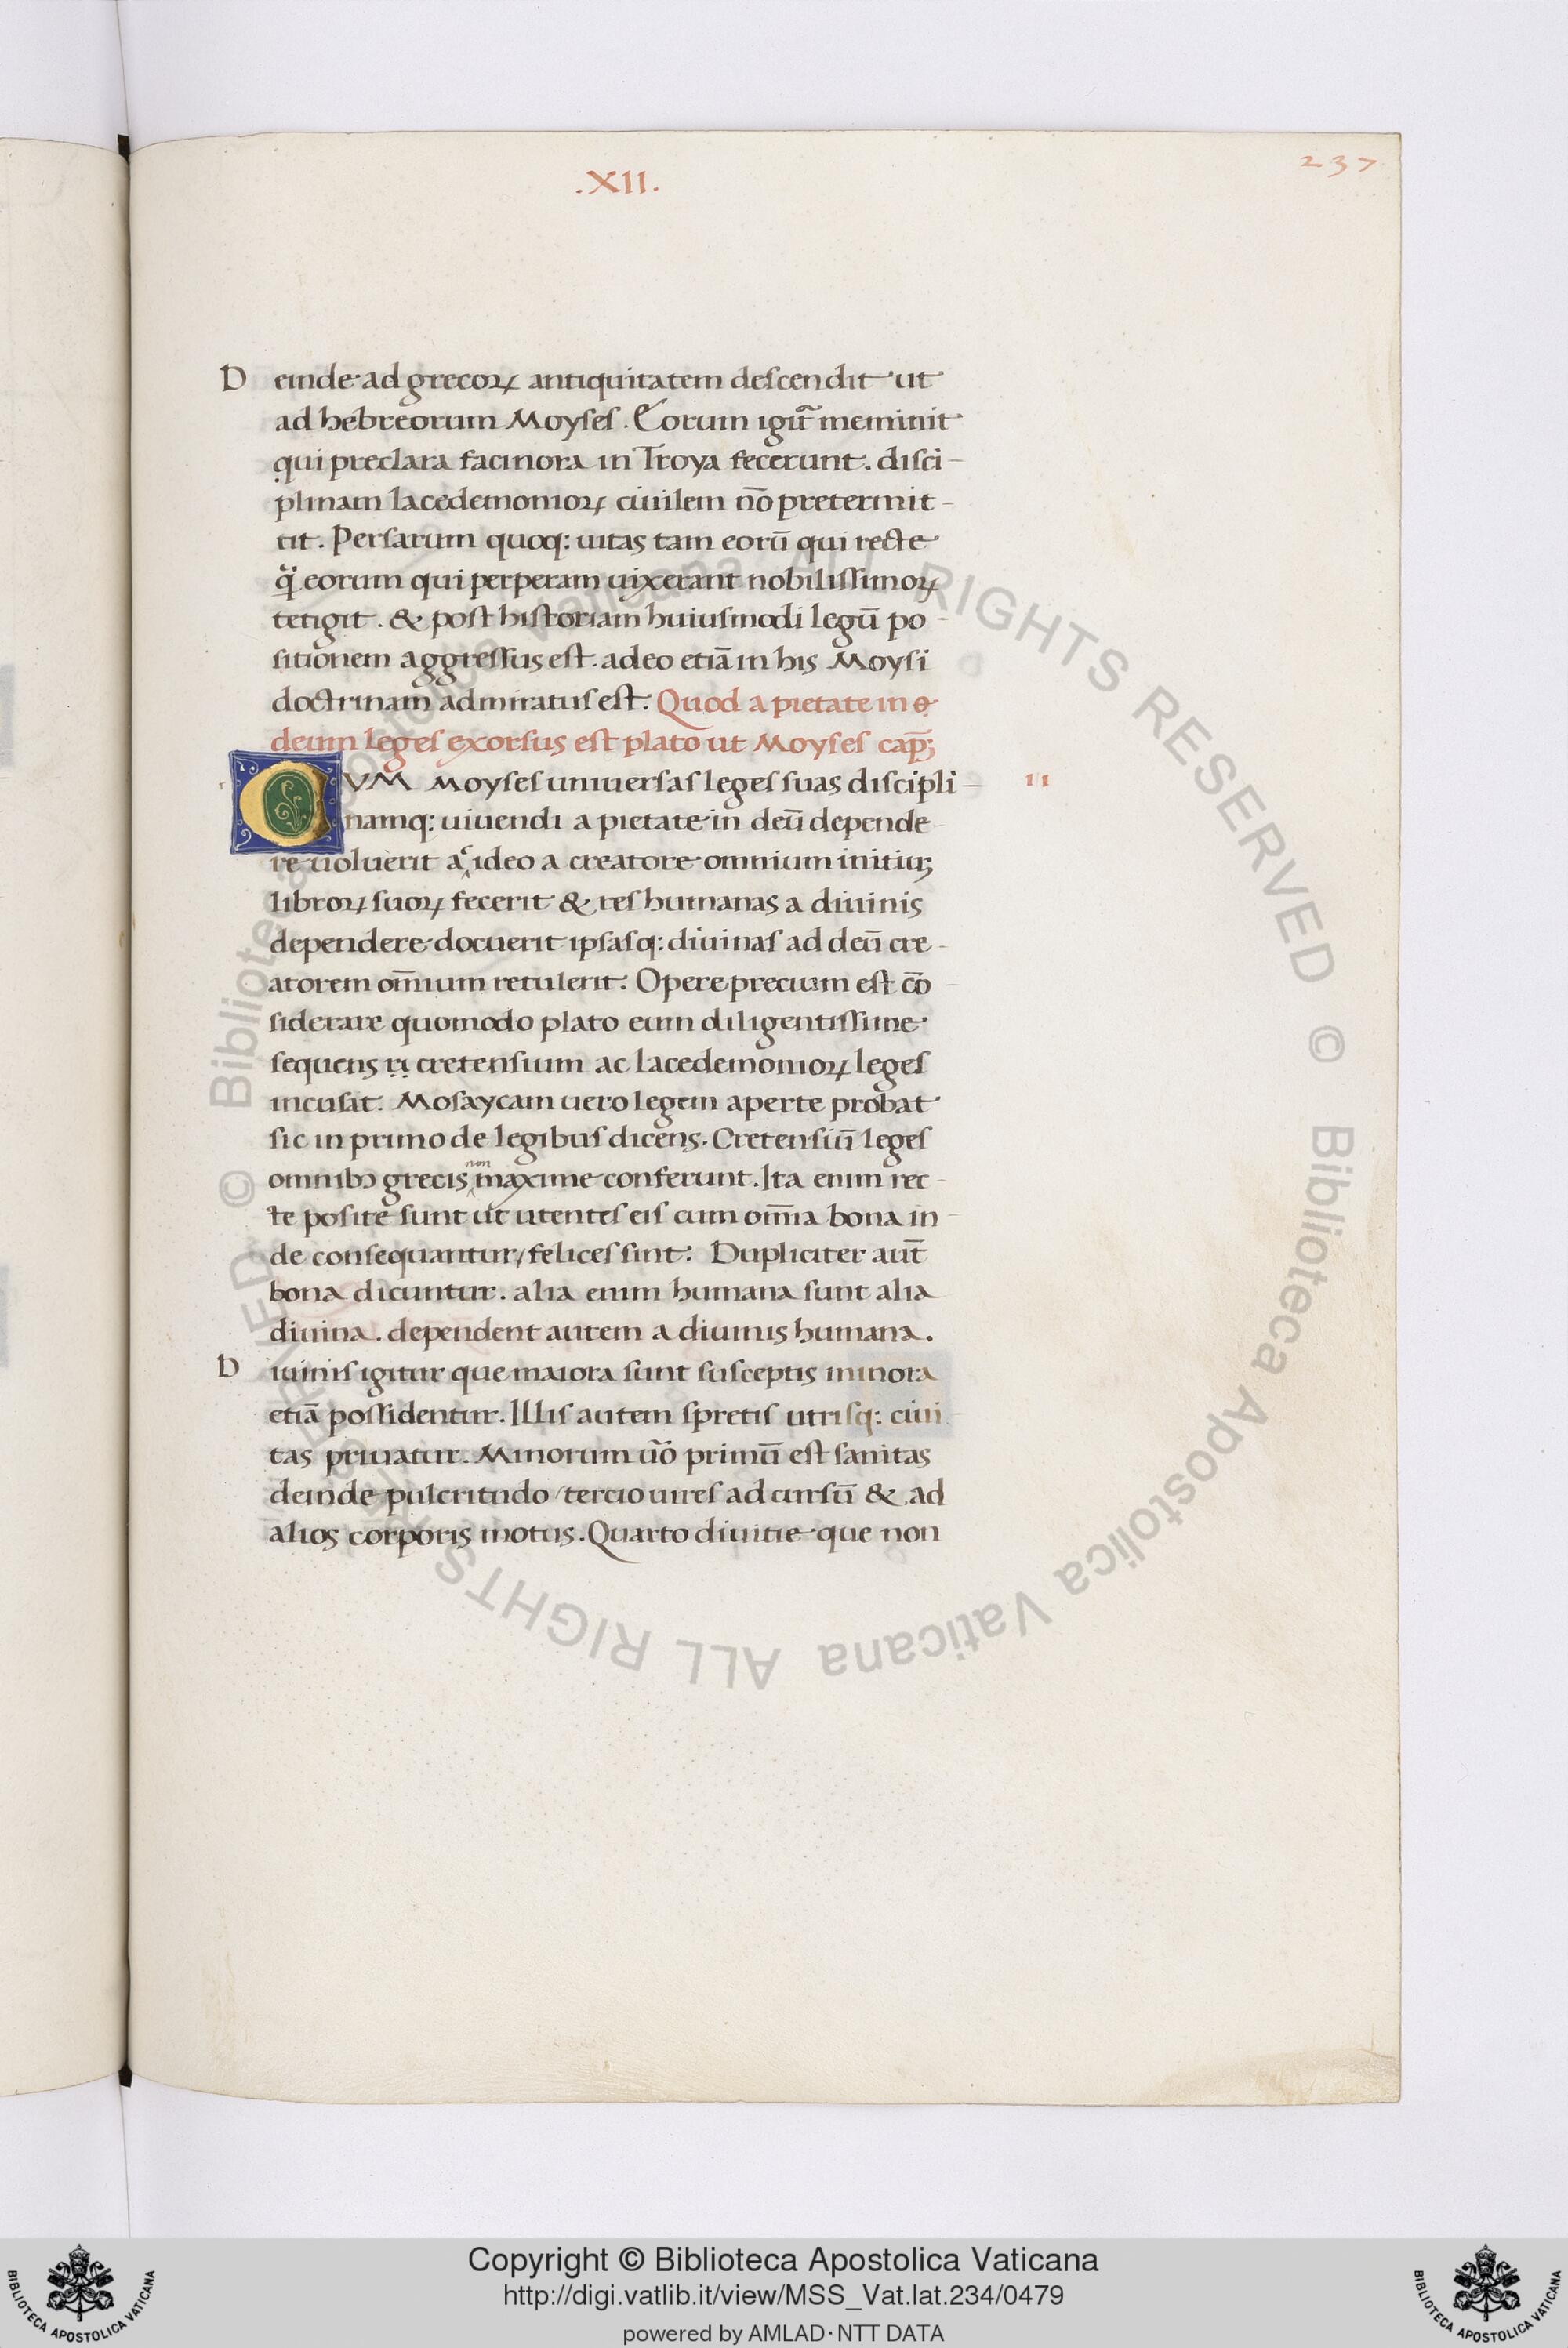 .XII.
237
Deinde ad grecoꝝ antiquitatem descendit ut
ad hebreorum Moyses. Eorum igit᷑ meminit
qui preclara facinora in Troya fecerunt. disci-
plinam lacedemonioꝝ ciuilem nō pretermit-
tit. Persarum quoq: uitas tam eorū qui recte
q̈̃ eorum qui perperam uixerant nobilissimoꝝ
tetigit. & post historiam huiusmodi legū po-
sitionem aggressus est. adeo etiā in his Moysi
doctrinam admiratus est. Quod a pietate in
deum leges exorsus est plato ut Moyses cap̄;
CVM Moyses uniuersas leges suas discipli- II
namq: uiuendi a pietate in deū depende-
re uoluerit ac ideo a creatore omnium initiuꝫ
libroꝝ suoꝝ fecerit & res humanas a diuinis
dependere docuerit ipsasq: diuinas ad deū cre-
atorem om̄ium retulerit. Opere precium est cō
siderare quomodo plato eum diligentissime
sequens cretensium ac lacedemonioꝝ leges
incusat. Mosaycam uero legem aperte probat
sic in primo de legibus dicens. Cretensiū leges
omnibꝰ grecis non maxime conferunt. Ita enim rec-
te posite sunt ut utentes eis cum om̄ia bona in-
de consequantur/ felices sint. Dupliciter aut̄
bona dicuntur. alia enim humana sunt alia
diuina. dependent autem a diuinis humana.
Diuinis igitur que maiora sunt susceptis minora
etiā possidentur. Illis autem spretis utrisq: ciui
tas priuatur. Minorum ūo primū est sanitas
deinde pulcritudo/ tercio uires ad cursū & ad
alios corporis motus. Quarto diuitie que non
© Biblioteca Apostolica Vaticana ALL RIGHTS RESERVED © Biblioteca Apostolica Vaticana ALL RIGHTS RESERVED
Copyright © Biblioteca Apostolica Vaticana
http://digi.vatlib.it/view/MSS_Vat.lat.234/0479
powered by AMLAD·NTT DATA
BIBLIOTECA APOSTOLICA VATICANA
BIBLIOTECA APOSTOLICA VATICANA